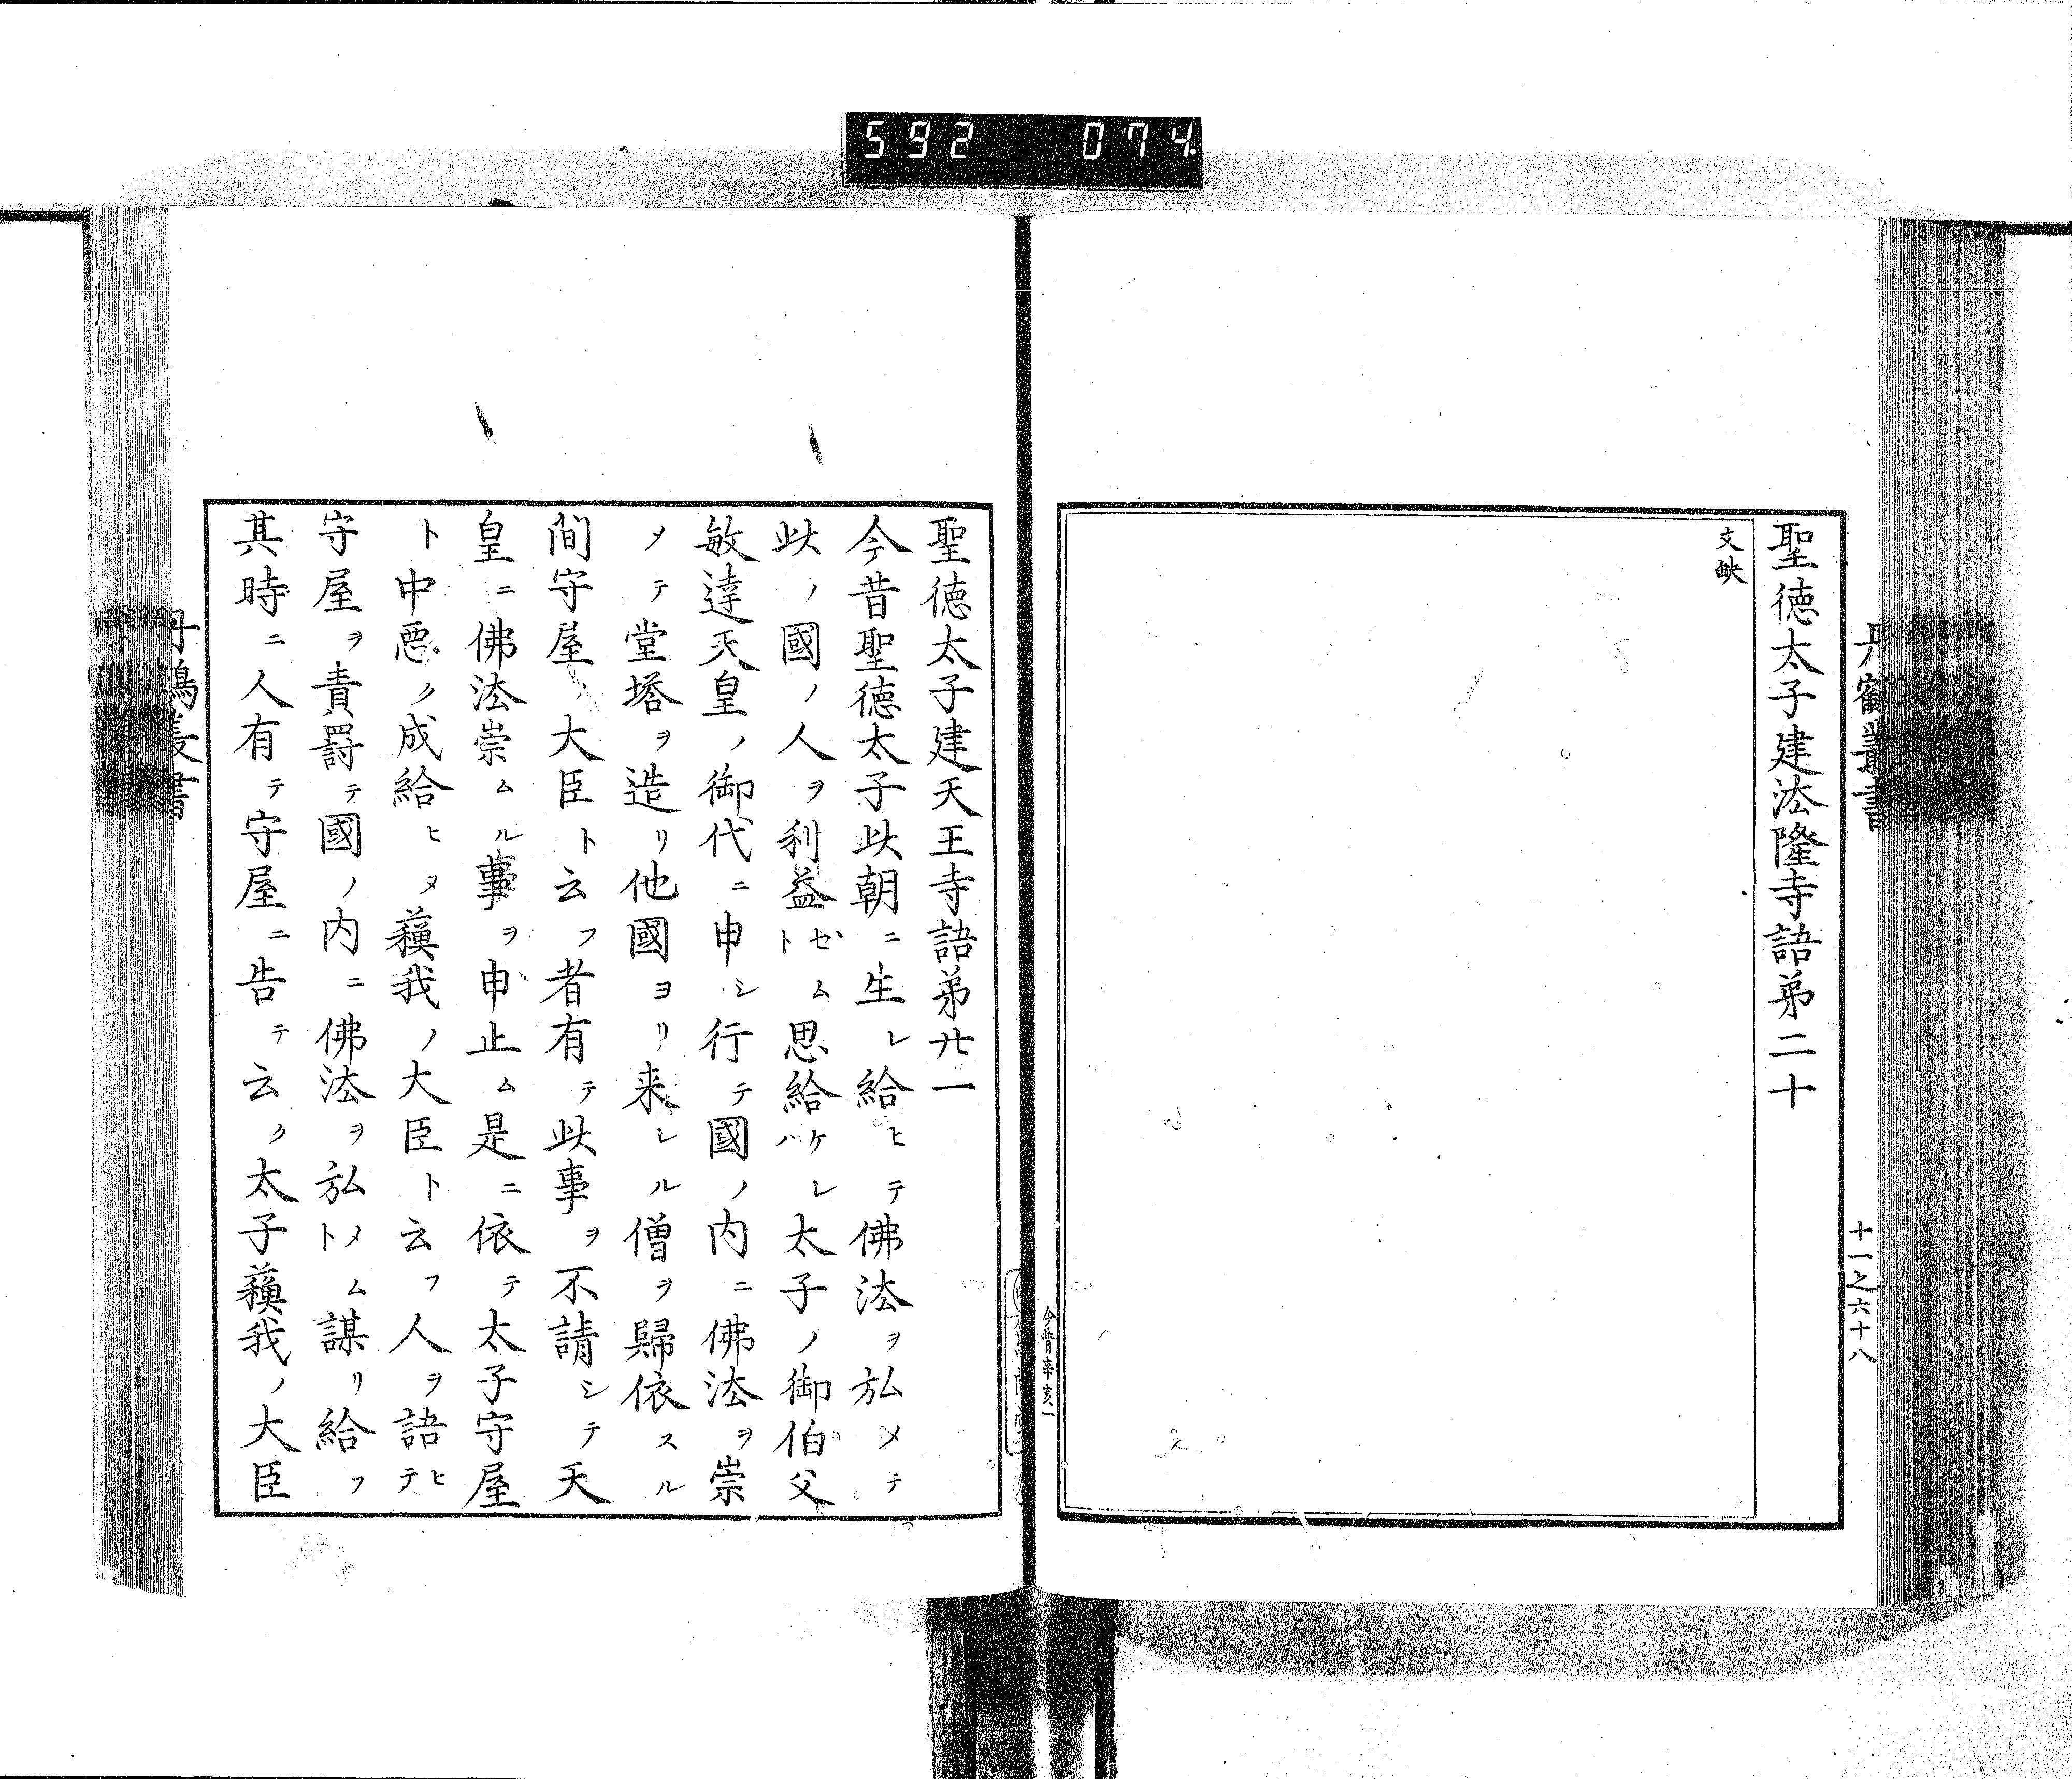 592 074
聖徳太子建法隆寺語第二十
文缺
十一之六十八
今昔辛亥一
聖徳太子建天王寺語第廿一
今昔聖徳太子此朝ニ生レ給ヒテ佛法ヲ弘メテ
此ノ國ノ人ヲ利益セムト思給ケレハ太子ノ御伯父
敏達天皇ノ御代ニ申シ行テ國ノ内ニ佛法ヲ崇
メテ堂塔ヲ造リ他國ヨリ来シル僧ヲ歸依スル
間守屋ノ大臣ト云フ者有テ此事ヲ不請シテ天
皇ニ佛法崇ムル事ヲ申止ム是ニ依テ太子守屋
ト中悪ク成給ヒヌ蘓我ノ大臣ト云フ人ヲ語ヒテ
守屋ヲ責罸テ國ノ内ニ佛法ヲ弘メムト謀リ給フ
其時ニ人有テ守屋ニ告テ云ク太子蘓我ノ大臣